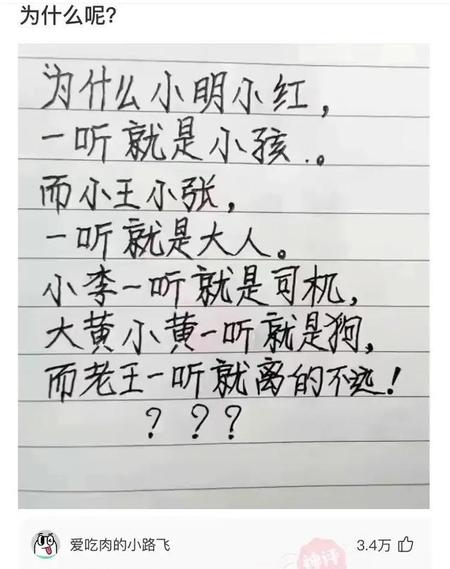 为什么呢?
为什么小明小红，
一听就是小孩.。
而小王小张，
一听就是大人。
小李一听就是司机，
大黄小黄一听就是狗，
而老王一听就离的不远！
？？？
爱吃肉的小路飞
3.4万
神评